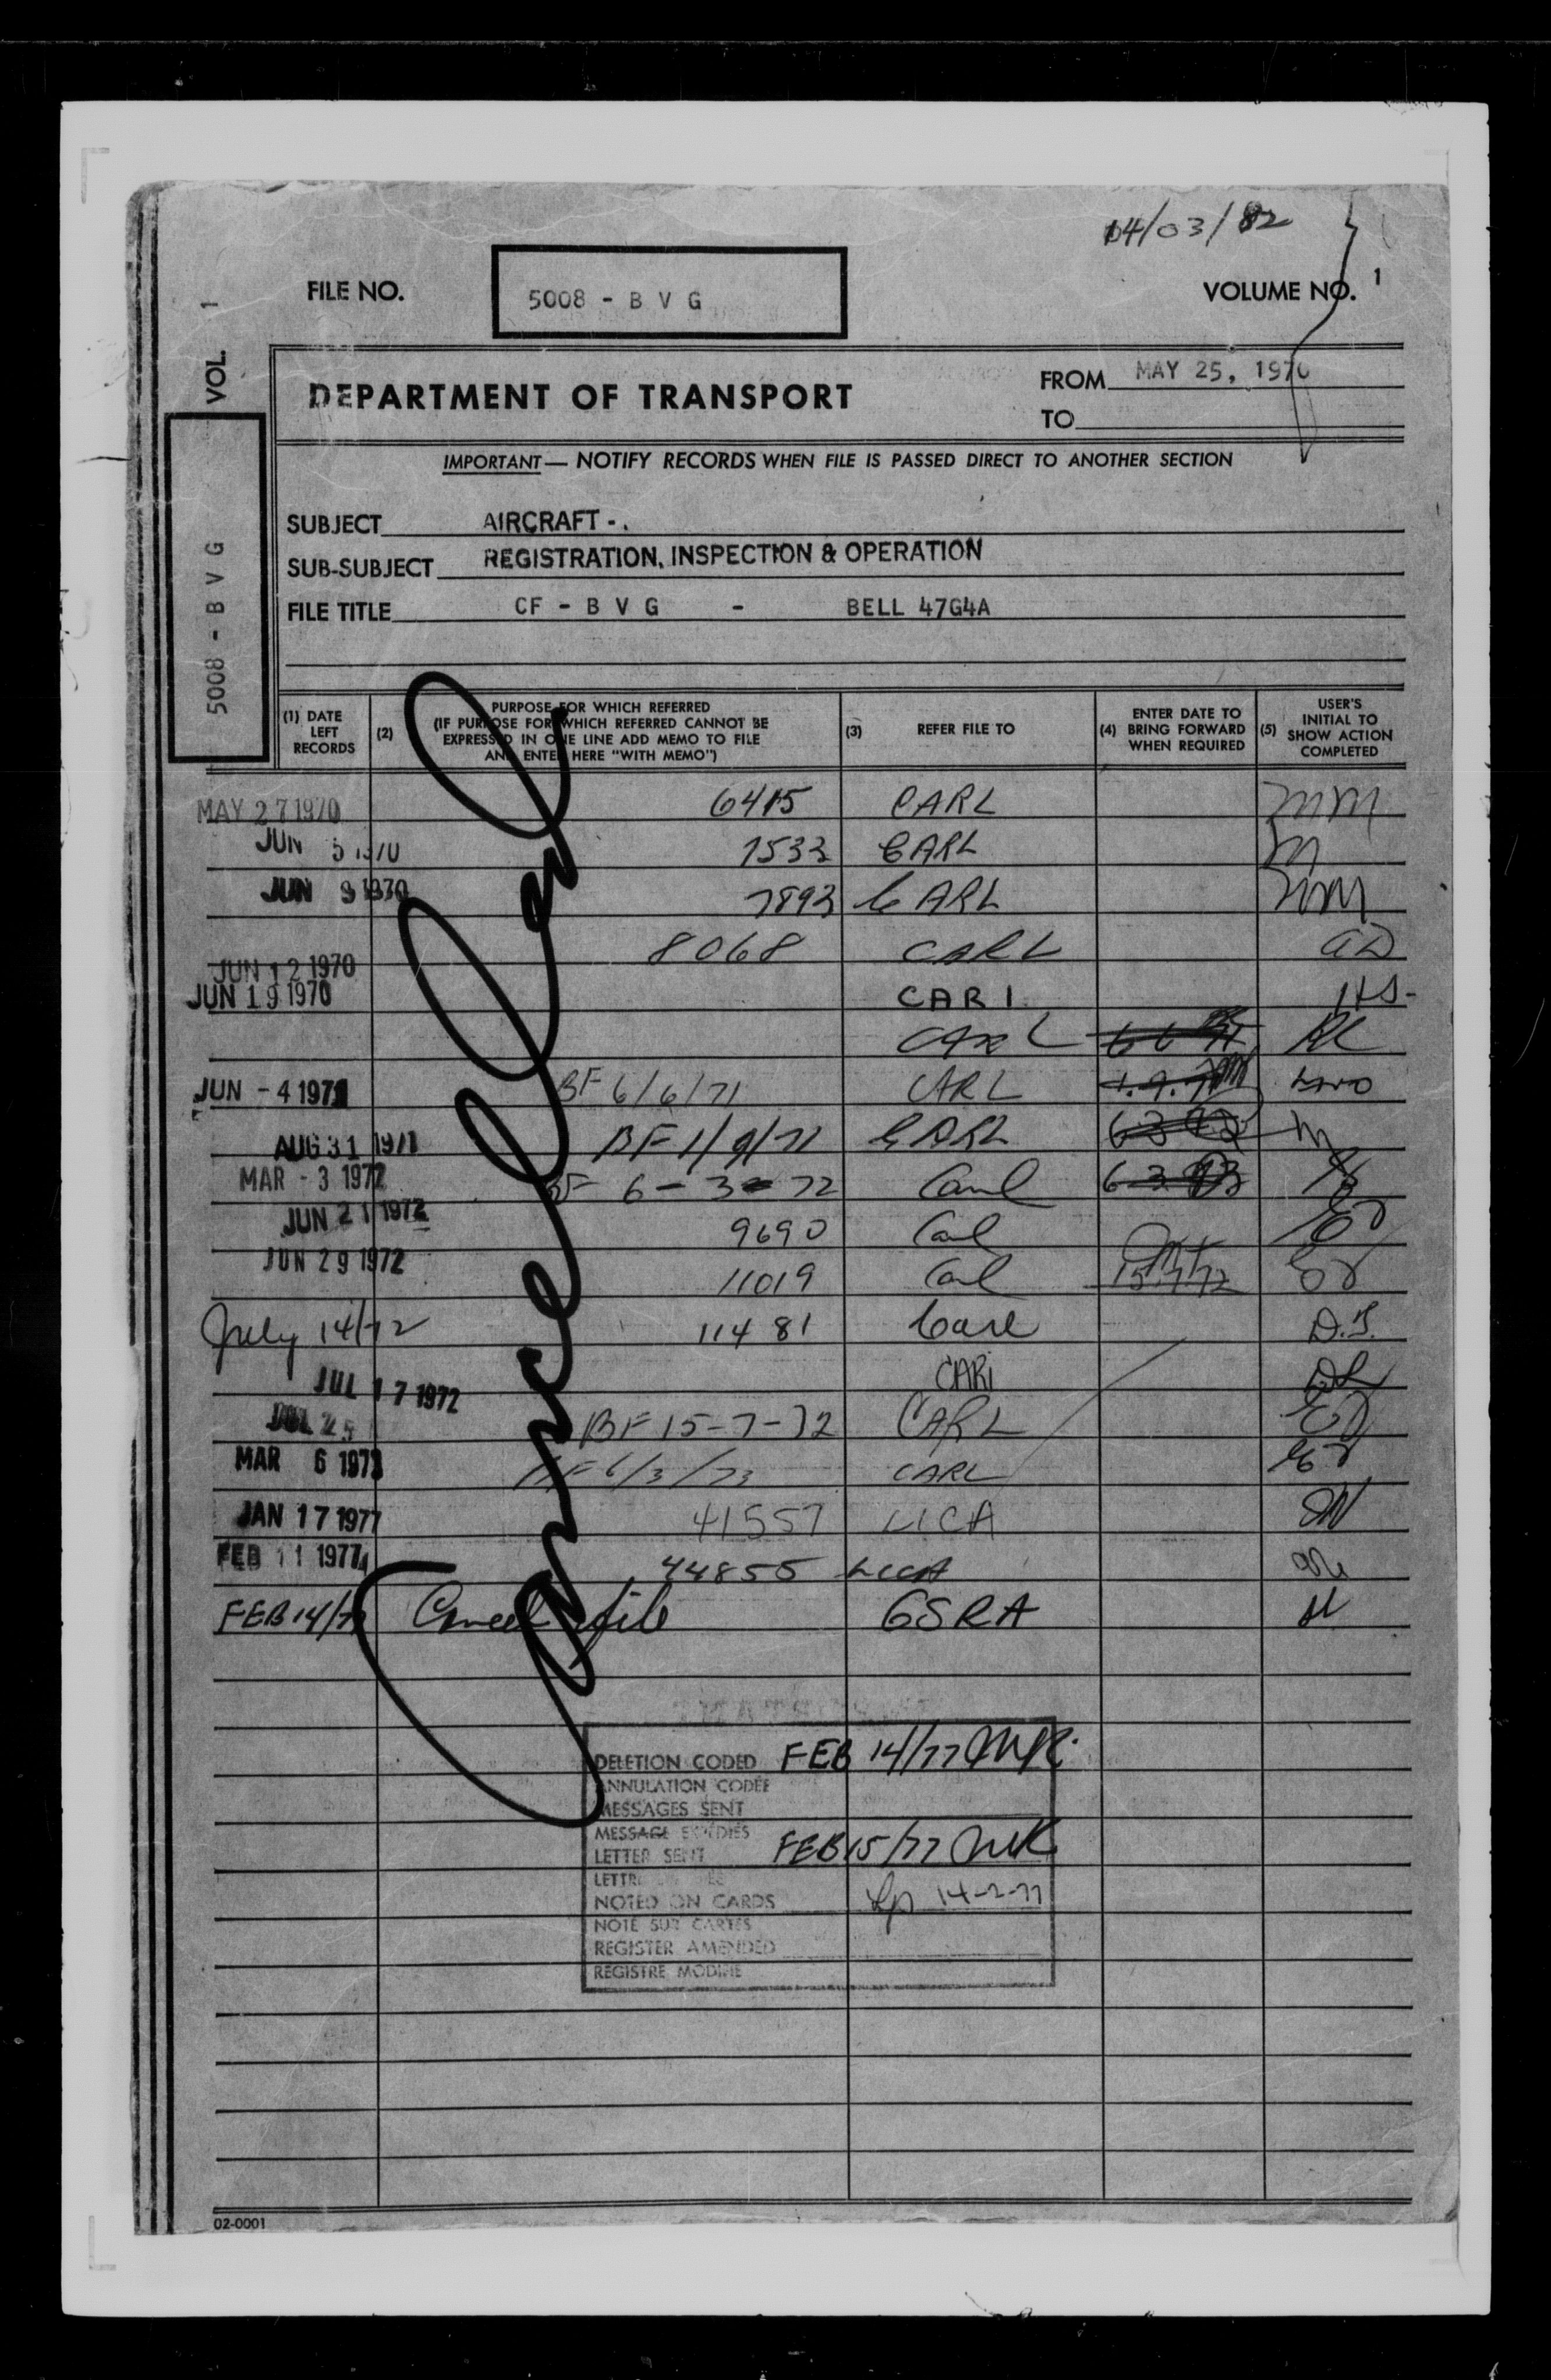 04/03/82
FILE NO. 5008 - B V G VOLUME NO. 1
VOL. 1
5008 - B V G
DEPARTMENT OF TRANSPORT
FROM MAY 25, 1970
TO
IMPORTANT — NOTIFY RECORDS WHEN FILE IS PASSED DIRECT TO ANOTHER SECTION
SUBJECT AIRCRAFT - .
SUB-SUBJECT REGISTRATION, INSPECTION & OPERATION
FILE TITLE CF - B V G - BELL 47G4A
(1) DATE LEFT RECORDS
(2) PURPOSE FOR WHICH REFERRED
(IF PURPOSE FOR WHICH REFERRED CANNOT BE
EXPRESSED IN ONE LINE ADD MEMO TO FILE
AND ENTER HERE "WITH MEMO")
(3) REFER FILE TO
(4) ENTER DATE TO BRING FORWARD WHEN REQUIRED
(5) USER'S INITIAL TO SHOW ACTION COMPLETED
MAY 27 1970 6415 CARL mm
JUN 5 1970 7533 CARL m
JUN 9 1970 7893 CARL mm
JUN 12 1970 8068 CARL aD
JUN 19 1970 CARL HS
CARL
JUN -4 1971 BF 6/6/71 CARL
AUG 31 1971 BF 1/9/71 CARL m
MAR -3 1972 BF 6-3-72 Carl
JUN 21 1972 9690 Carl
JUN 29 1972 11019 Carl 15.7.72
July 14/72 11481 Carl
JUL 17 1972 CARL
JUL 25 BF 15-7-72 CARL
MAR 6 1973 BF 6/3/73 CARL
JAN 17 1977 41557 LICA
FEB 11 1977 44855 LICA
FEB 14/77 Cancel file GSRA
Cancelled
DELETION CODED FEB 14/77
ANNULATION CODÉE
MESSAGES SENT
MESSAGE EXPÉDIÉS
LETTER SENT FEB 15/77
LETTRE
NOTED ON CARDS 14-2-77
NOTE SUR CARTES
REGISTER AMENDED
REGISTRE MODIFIE
02-0001